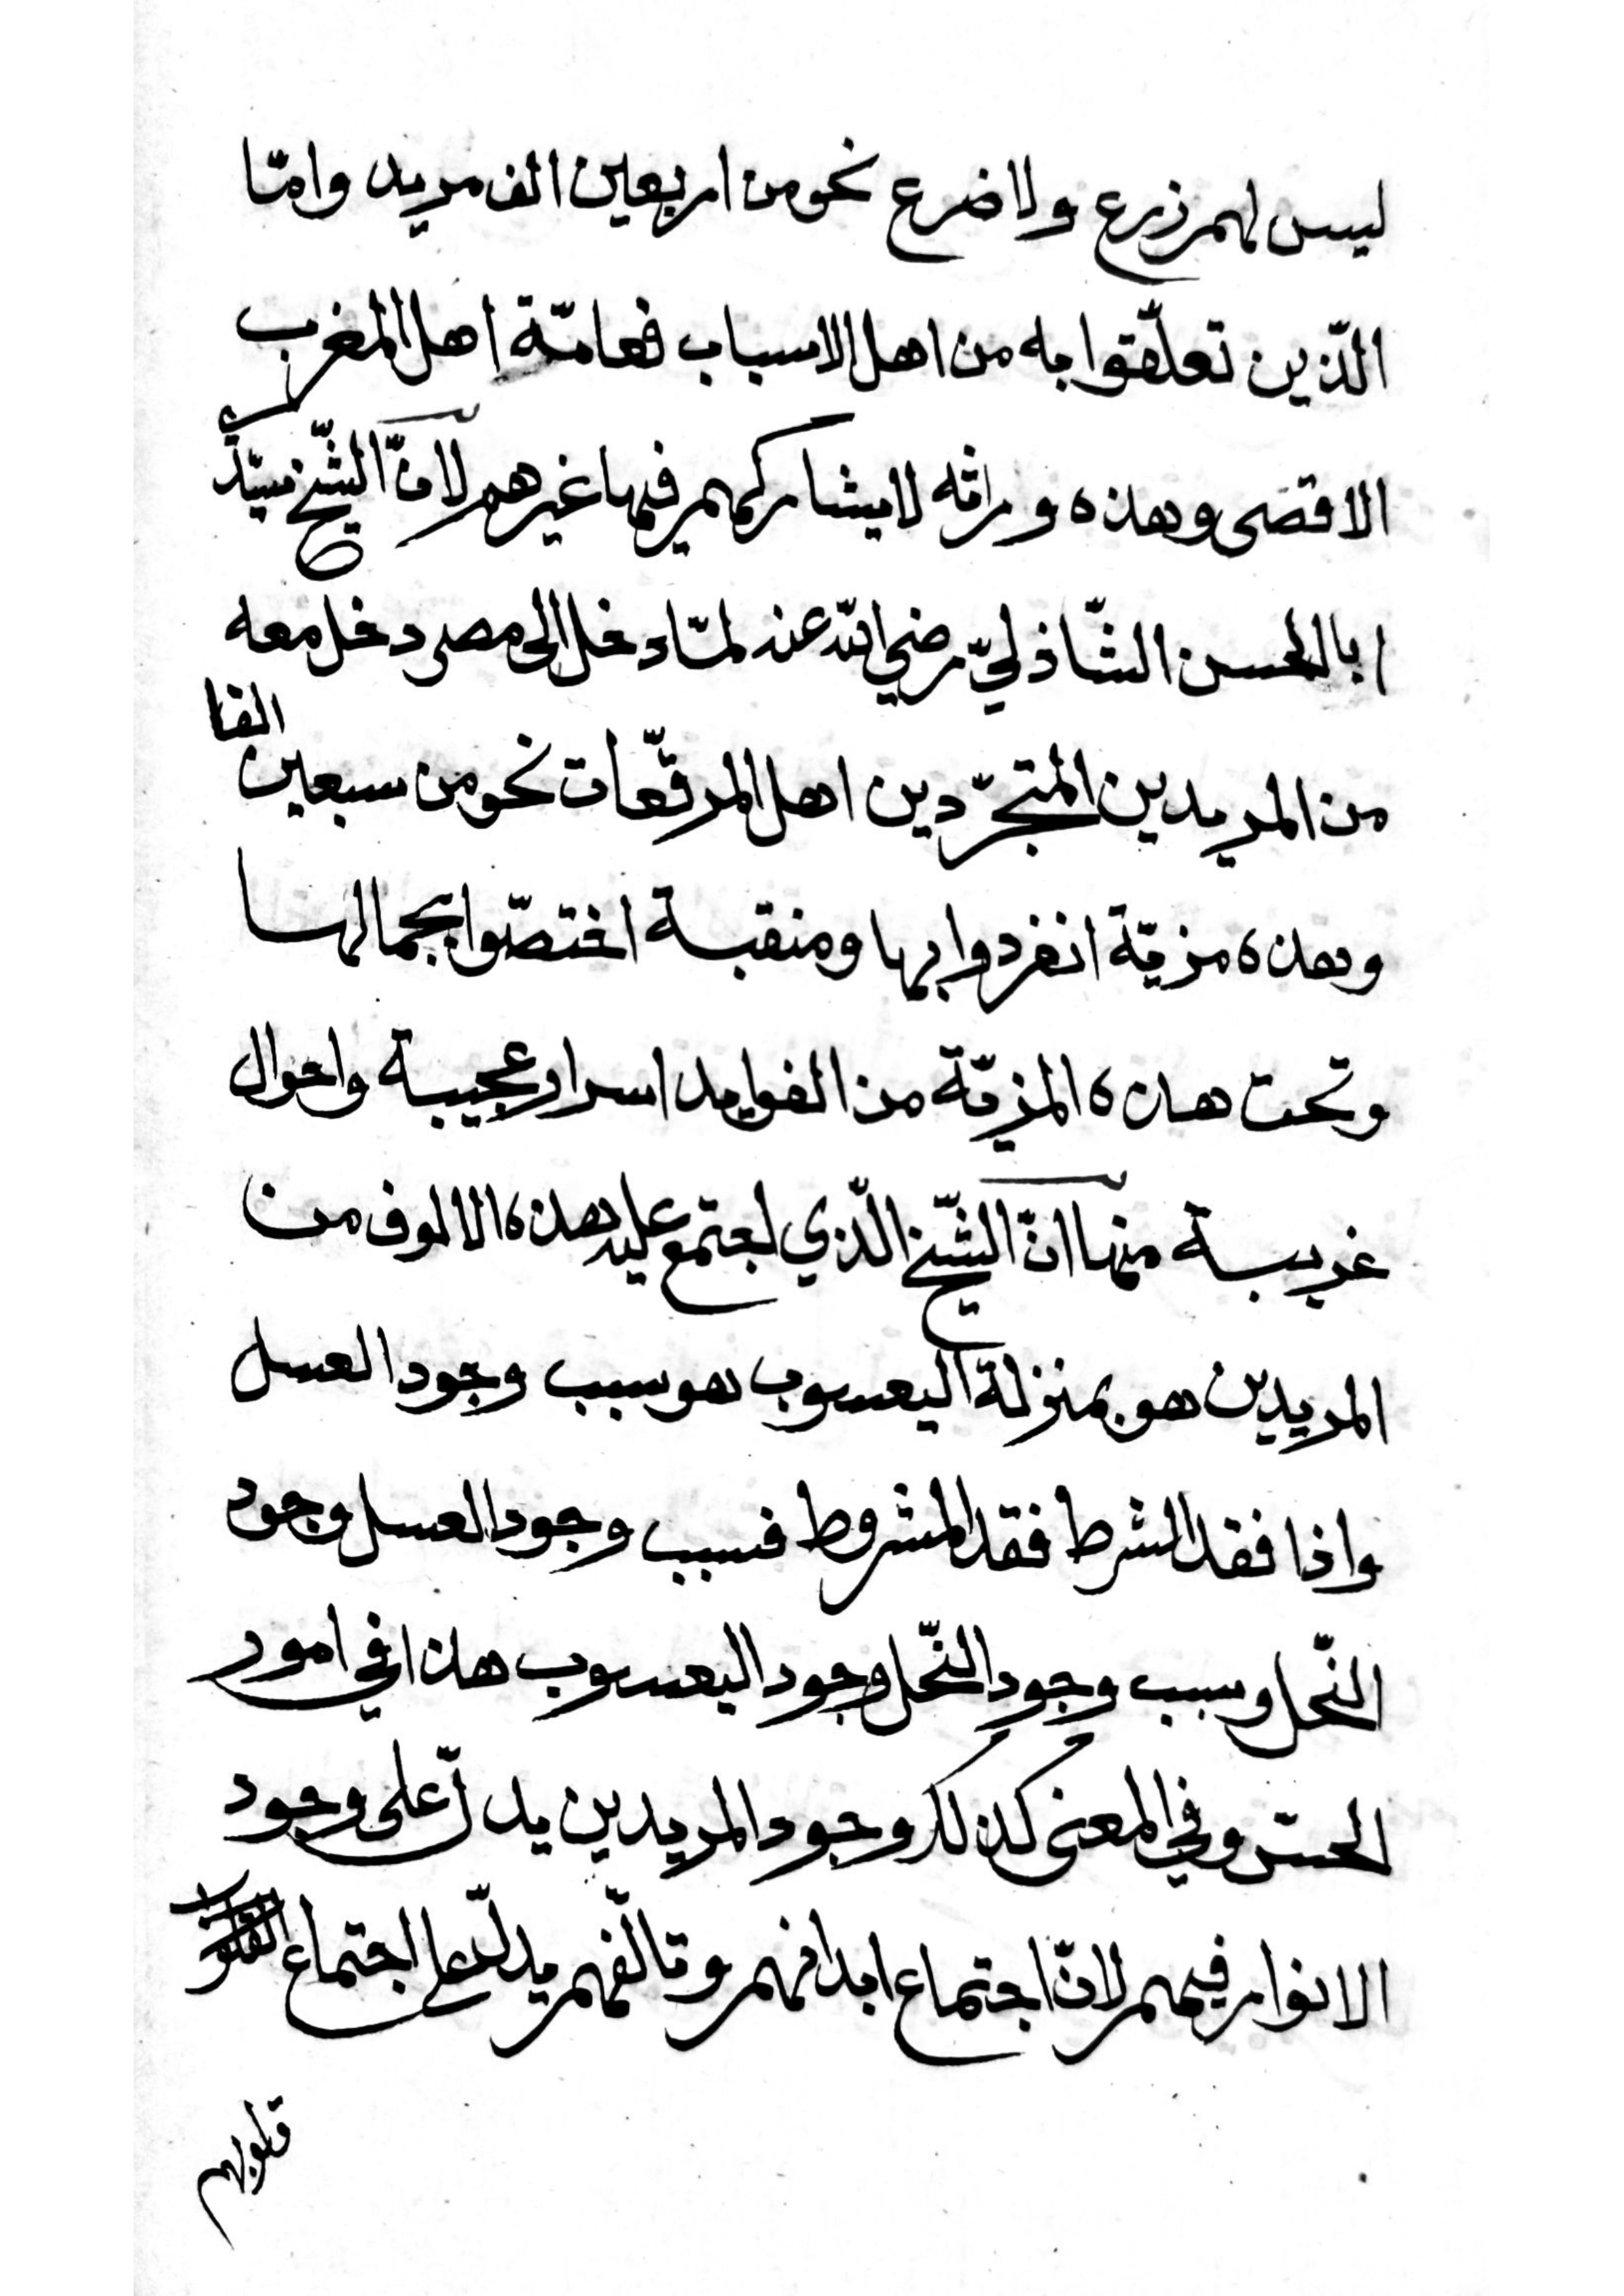 ليس لهم زرع ولا ضرع نحو من اربعين الف مريد وامّا
الّذين تعلّقوا به من اهل الاسباب فعامّة اهل المغرب
الاقصى وهذه وراثه لا يشاركهم فيها غيرهم لانّ الشّيخ سيّدي
ابا الحسن الشّاذليّ رضي الله عنه لمّا دخل الى مصر دخل معه
من المريدين المتجرّدين اهل المرقّعات نحو من سبعين الفا
وهذه مزيّة انفردوا بها ومنقبة اختصّوا بجمالها
وتحت هذه المزيّة من الفوايد اسرار عجيبة واحوال
غريبة منها انّ الشّيخ الّذي اجتمع عليه هذه الالوف من
المريدين هو بمنزلة اليعسوب هو سبب وجود العسل
واذا فقد الشرط فقد المشروط فسبب وجود العسل وجود
النّحل وسبب وجود النّحل وجود اليعسوب هذا في امور
الحسّ وفي المعنى كذلك وجود المريدين يدلّ على وجود
الانوار فيهم لانّ اجتماع ابدانهم وتالّفهم يدلّ على اجتماع القلوب
قلوبهم